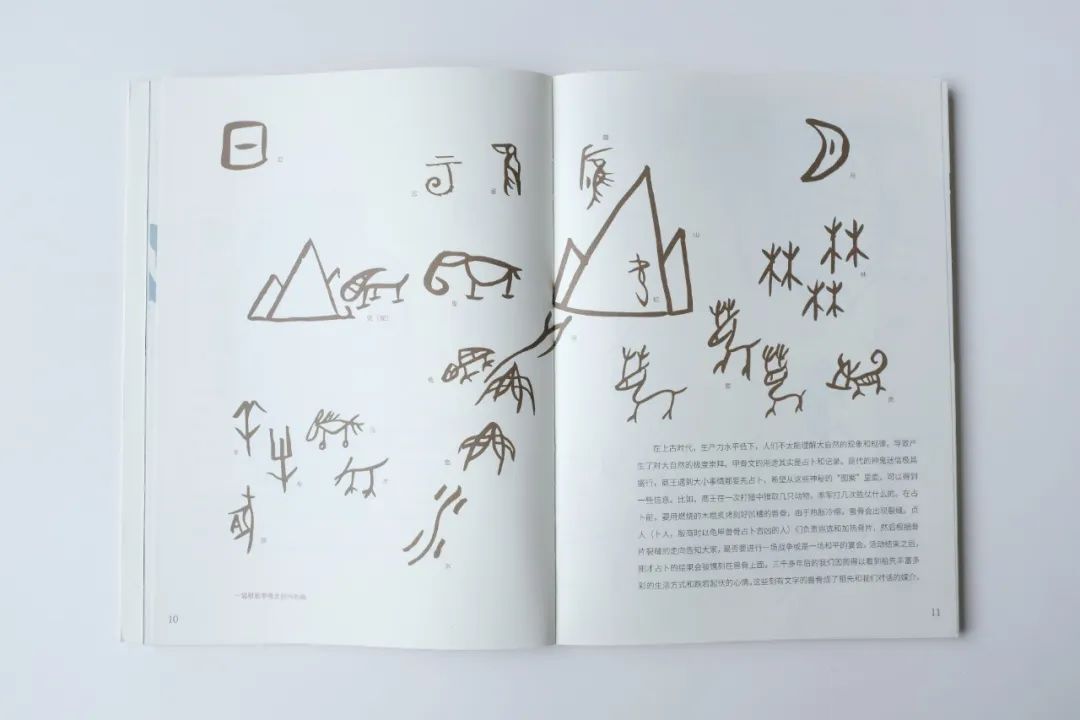 日
云
月
山
象
林
水
在上古时代，生产力水平低下，人们不太能理解大自然的现象和规律，导致
产生了对大自然的极度崇拜。甲骨文的用途其实是占卜和记录。商代的神鬼迷信极其
盛行，商王遇到大小事情都要先占卜，希望从这些神秘的“图案”里面，可以得到
一些信息。比如，商王在一次打猎中猎取几只动物，率军打几次胜仗什么的。在占
卜前，要用燃烧的木棍炙烤刻好凹槽的兽骨，由于热胀冷缩，兽骨会出现裂缝。贞
人（卜人，殷商时以龟甲兽骨占卜吉凶的人）们负责挑选和加热骨片，然后根据骨
片裂缝的走向告知大家，是否要进行一场战争或是一场和平的宴会。活动结束之后，
刚才占卜的结果会被镌刻在兽骨上面。三千多年后的我们因而得以看到祖先丰富多
彩的生活方式和跌宕起伏的心情。这些刻有文字的兽骨成了祖先和我们对话的媒介。
10
11